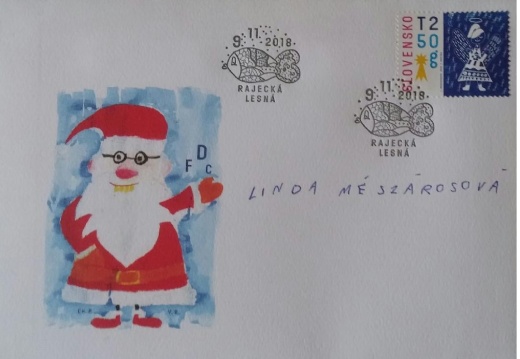 9. 11. 2018
RAJECKÁ
LESNÁ
SLOVENSKO
T2 50g
9. 11. 2018
RAJECKÁ
LESNÁ
FDC
LINDA MÉSZÁROSOVÁ